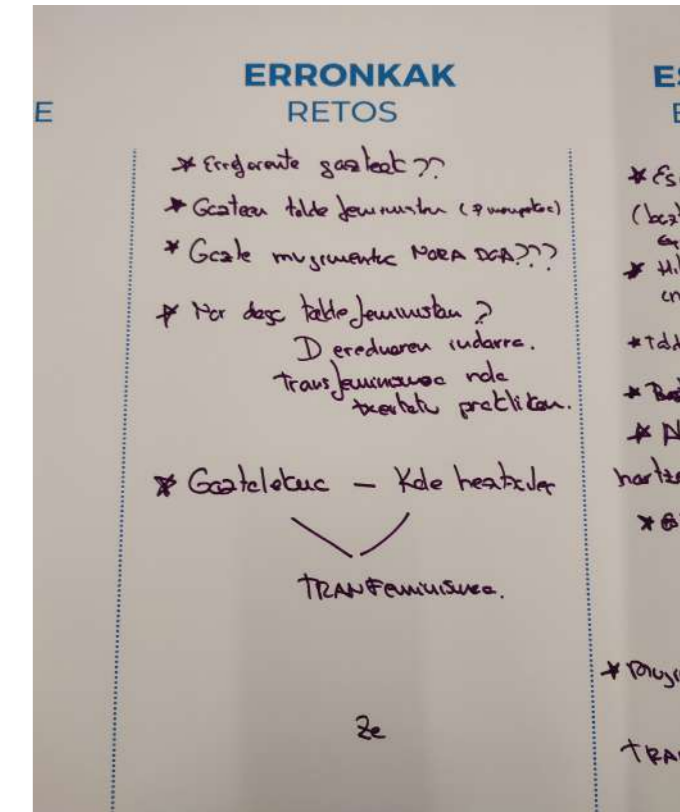 E
ERRONKAK
RETOS
* Erreferente gazteak ??
* Gazteen talde feminista
* Gazte mugimentua NORA DOA???
* Nor dago talde feministan ?
D ereduaren indarra.
Transfeminismoa nola
txertatu praktikan.
* Gaztelekua — Kale hezitzailea
TRANFeminismoa.
Ze
ES
E
* Es
* Hi
* Tald
hartze
* Mugi
TRA